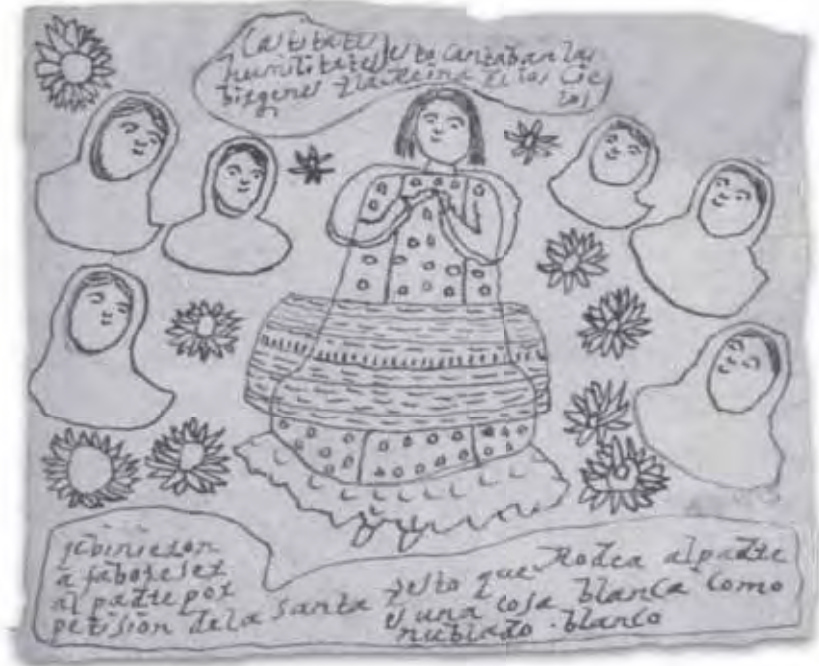 Castitate
humilitates esto cantaban las
birgenes y la Reina de los Cie
los
y Binieron
a faboreser
al padre por
petisión de la Santa y esto que Rodea al padre
es una cosa blanca como
nublado blanco